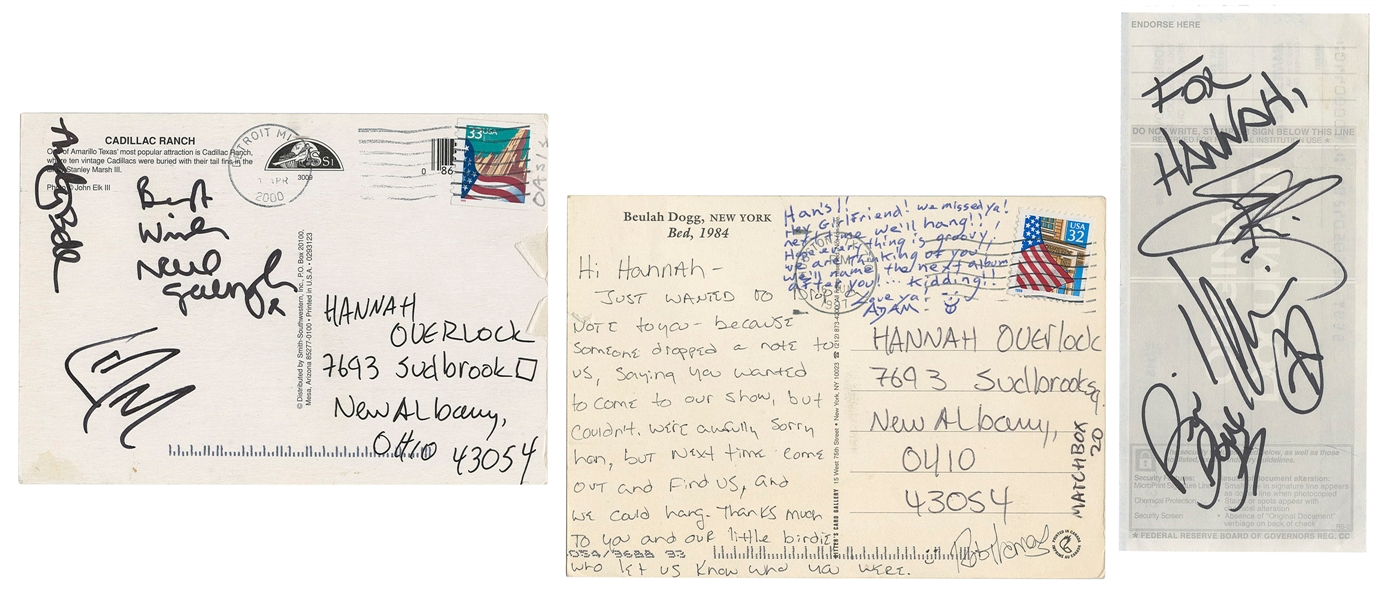 CADILLAC RANCH
One of Amarillo Texas' most popular attraction is Cadillac Ranch,
where ten vintage Cadillacs were buried with their tail fins in the
Stanley Marsh III.
Photo © John Elk III
DETROIT MI
APR
2000
3009
0 86
33 USA
OASIS
Best
Wishes
Noel
Gallagher
© Distributed by Smith-Southwestern, Inc., P.O. Box 20100,
Mesa, Arizona 85277-0100 • Printed in U.S.A. • 0293123
HANNAH
OVERLOCK
7693 Sudbrook
New Albany,
OHIO 43054
Beulah Dogg, NEW YORK
Bed, 1984
Han's!!
Hey Girlfriend! we missed ya!
next time we'll hang!!
Hope everything is groovy,
we are thinking of you
we'll name the next album
after you!... Kidding!!
Love ya!
ADAM-
USA
32
Hi Hannah-
JUST WANTED TO
NOTE to you- because
someone dropped a note to
us, saying you wanted
to come to our show, but
couldn't. We're awfully sorry
hon, but next time come
out and find us, and
we could hang. Thanks much
to you and our little birdie
who let us know who you were.
HANNAH OVERlock
7693 Sudbrook sq.
New Albany,
OHIO
43054
MATCHBOX
20
Rob Thomas
ENDORSE HERE
FOR
HANNAH,
DO NOT WRITE, STAMP OR SIGN BELOW THIS LINE
Security Features:
Document alteration:
MicroPrint Signature Line
as dotted line when photocopied
Chemical Protection
Stains or spots appear with
chemical alteration
Security Screen
• Absence of "Original Document"
verbiage on back of check
★ FEDERAL RESERVE BOARD OF GOVERNORS REG. CC